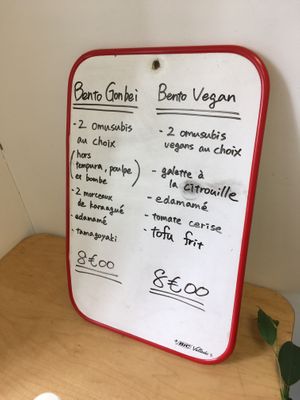 Bento Gonbei
- 2 omusubis
au choix
(hors
tempura, poulpe
et bombe)
- 2 morceaux
de karaagué
- edamamé
- tamagoyaki
8€00
Bento Vegan
- 2 omusubis
vegans au choix
- galette à
la citrouille
- edamamé
- tomate cerise
- tofu frit
8€00
BIC Velleda